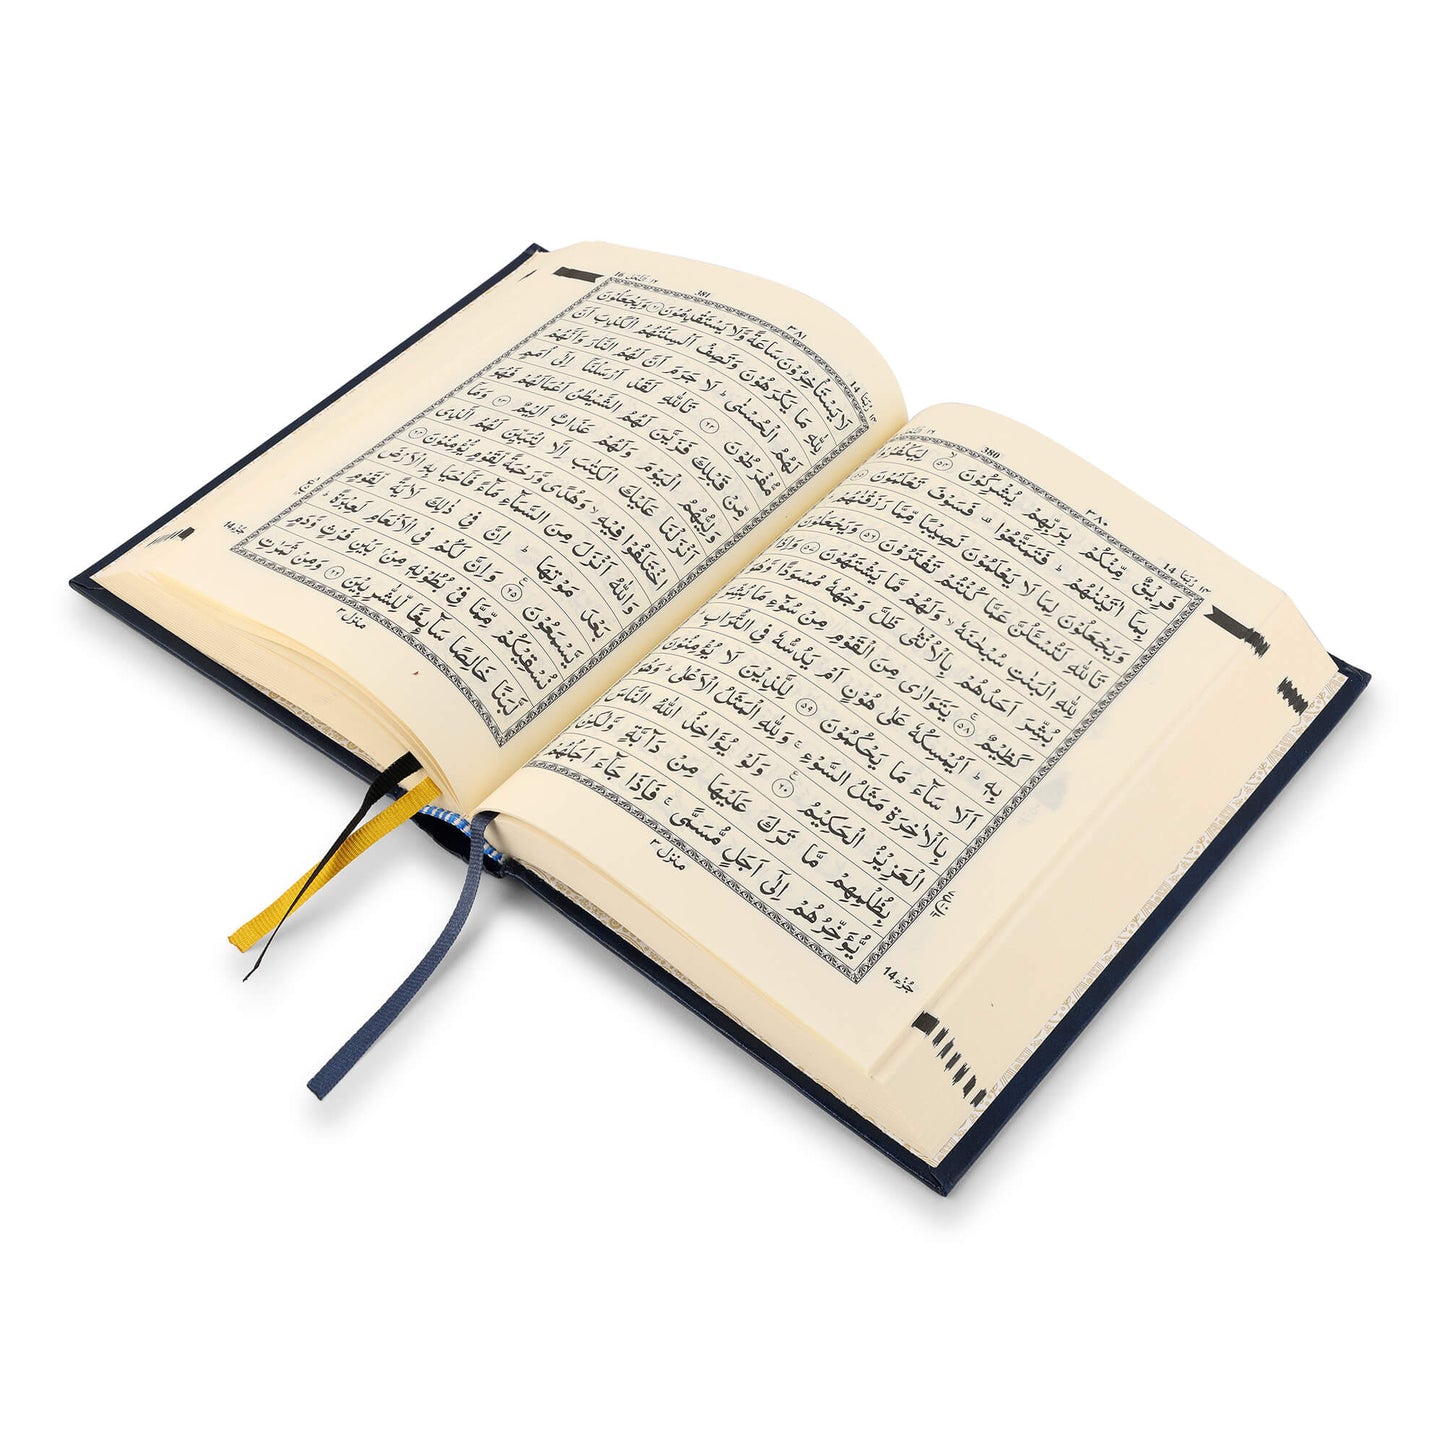 14 رُبَمَا ٣٨٠ 380
فَرِيْقٌ مِّنْكُمْ بِرَبِّهِمْ يُشْرِكُوْنَ ۙ ٥٤ لِيَكْفُرُوْا
بِمَاۤ اٰتَيْنٰهُمْ ؕ فَتَمَتَّعُوْا ۫ فَسَوْفَ تَعْلَمُوْنَ ٥٥
وَيَجْعَلُوْنَ لِمَا لَا يَعْلَمُوْنَ نَصِيْبًا مِّمَّا رَزَقْنٰهُمْ
تَاللّٰهِ لَتُسْـَٔلُنَّ عَمَّا كُنْتُمْ تَفْتَرُوْنَ ٥٦ وَيَجْعَلُوْنَ
لِلّٰهِ الْبَنٰتِ سُبْحٰنَهٗ ۙ وَلَهُمْ مَّا يَشْتَهُوْنَ ٥٧ وَاِذَا
بُشِّرَ اَحَدُهُمْ بِالْاُنْثٰى ظَلَّ وَجْهُهٗ مُسْوَدًّا وَّهُوَ
كَظِيْمٌ ۚ ٥٨ يَتَوَارٰى مِنَ الْقَوْمِ مِنْ سُوْٓءِ مَا بُشِّرَ
بِهٖ ؕ اَيُمْسِكُهٗ عَلٰى هُوْنٍ اَمْ يَدُسُّهٗ فِى التُّرَابِ
اَلَا سَآءَ مَا يَحْكُمُوْنَ ٥٩ لِلَّذِيْنَ لَا يُؤْمِنُوْنَ
بِالْاٰخِرَةِ مَثَلُ السَّوْءِ ۚ وَلِلّٰهِ الْمَثَلُ الْاَعْلٰى ؕ وَهُوَ
الْعَزِيْزُ الْحَكِيْمُ ٦٠ وَلَوْ يُؤَاخِذُ اللّٰهُ النَّاسَ
بِظُلْمِهِمْ مَّا تَرَكَ عَلَيْهَا مِنْ دَآبَّةٍ وَّلٰكِنْ
يُّؤَخِّرُهُمْ اِلٰٓى اَجَلٍ مُّسَمًّى ۚ فَاِذَا جَآءَ اَجَلُهُمْ
منزل ٣
جُزْء 14
14 رُبَمَا ٣٨١ 381 النحل 16
لَا يَسْتَاْخِرُوْنَ سَاعَةً وَّلَا يَسْتَقْدِمُوْنَ ٦١ وَيَجْعَلُوْنَ
لِلّٰهِ مَا يَكْرَهُوْنَ وَتَصِفُ اَلْسِنَتُهُمُ الْكَذِبَ اَنَّ
لَهُمُ الْحُسْنٰى ؕ لَا جَرَمَ اَنَّ لَهُمُ النَّارَ وَاَنَّهُمْ
مُّفْرَطُوْنَ ٦٢ تَاللّٰهِ لَقَدْ اَرْسَلْنَاۤ اِلٰٓى اُمَمٍ
مِّنْ قَبْلِكَ فَزَيَّنَ لَهُمُ الشَّيْطٰنُ اَعْمَالَهُمْ فَهُوَ
وَلِيُّهُمُ الْيَوْمَ وَلَهُمْ عَذَابٌ اَلِيْمٌ ٦٣ وَمَاۤ
اَنْزَلْنَا عَلَيْكَ الْكِتٰبَ اِلَّا لِتُبَيِّنَ لَهُمُ الَّذِى
اخْتَلَفُوْا فِيْهِ ۙ وَهُدًى وَّرَحْمَةً لِّقَوْمٍ يُّؤْمِنُوْنَ ٦٤
وَاللّٰهُ اَنْزَلَ مِنَ السَّمَآءِ مَآءً فَاَحْيَا بِهِ الْاَرْضَ
بَعْدَ مَوْتِهَا ؕ اِنَّ فِىْ ذٰلِكَ لَاٰيَةً لِّقَوْمٍ
يَّسْمَعُوْنَ ٦٥ وَاِنَّ لَكُمْ فِى الْاَنْعَامِ لَعِبْرَةً ؕ
نُسْقِيْكُمْ مِّمَّا فِىْ بُطُوْنِهٖ مِنْۢ بَيْنِ فَرْثٍ وَّدَمٍ
لَّبَنًا خَالِصًا سَآئِغًا لِّلشّٰرِبِيْنَ ٦٦ وَمِنْ ثَمَرٰتِ
منزل ٣
جُزْء 14